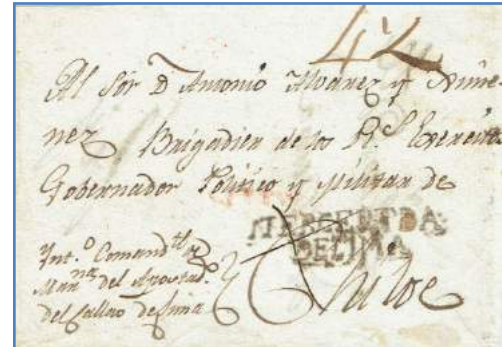 4½
Al Sór D. Antonio Alvarez y Xime-
nez Brigadier de los R.s Exercitos
Gobernador Politico y Militar de
Chiloe
Int.o Comand.te
Mar.na del Apostad.o
del Callao de Lima
DE LIMA